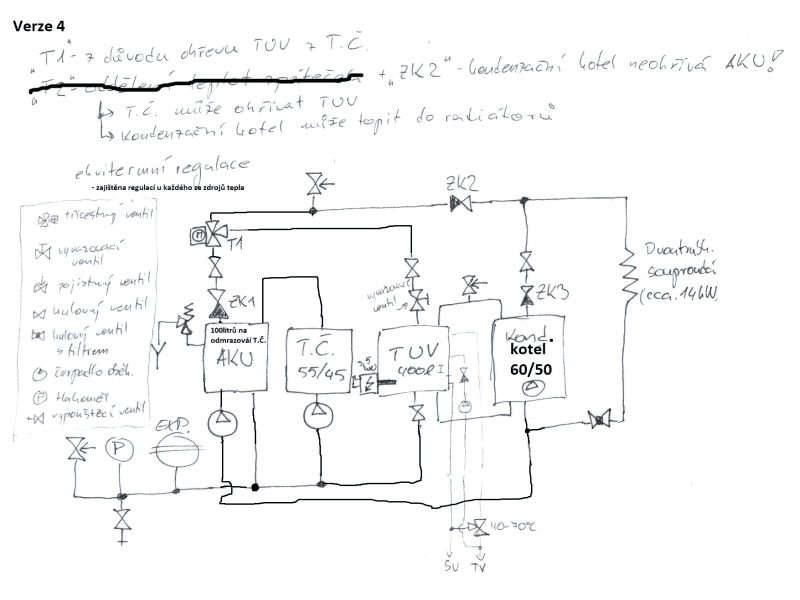 Verze 4
"T1" - z důvodu ohřevu TUV z T.Č.
"T2" - oddělení teplot zpátečak + "ZK2" - kondenzační kotel neohřívá AKU!
↳ T.Č. může ohřívat TUV
↳ kondenzační kotel může topit do radiátorů
ekvitermní regulace
- zajištěna regulací u každého ze zdrojů tepla
třícestný ventil
vyvažovací ventil
pojistný ventil
kulový ventil
kulový ventil s filtrem
čerpadlo oběh.
P tlakoměr
vypouštěcí ventil
M
T1
ZK2
ZK1
ZK3
vyvažovací ventil
souproudá
(cca. 14kW)
100litrů na
odmrazováí T.Č.
AKU
T.Č.
55/45
TUV
400l
Kond.
kotel
60/50
EXP.
P
40-70°C
SV
TV